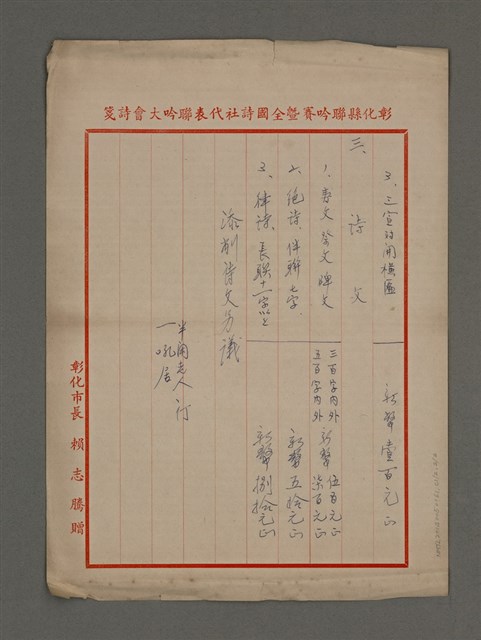 彰化縣聯吟賽暨全國詩社代表聯吟大會詩箋
3、三宣的開橫區 新幣壹百元正
三、詩文
1、壽文祭文碑文 三百字內外 新幣 伍百元正
五百字內外 柒百元正
2、絕詩、伴聯七字、 新幣五拾元正
3、律詩、長联十一字以上 新幣捌拾元正
添削詩文另議
半閒老人訂
一吼居
彰化市長 賴志騰贈